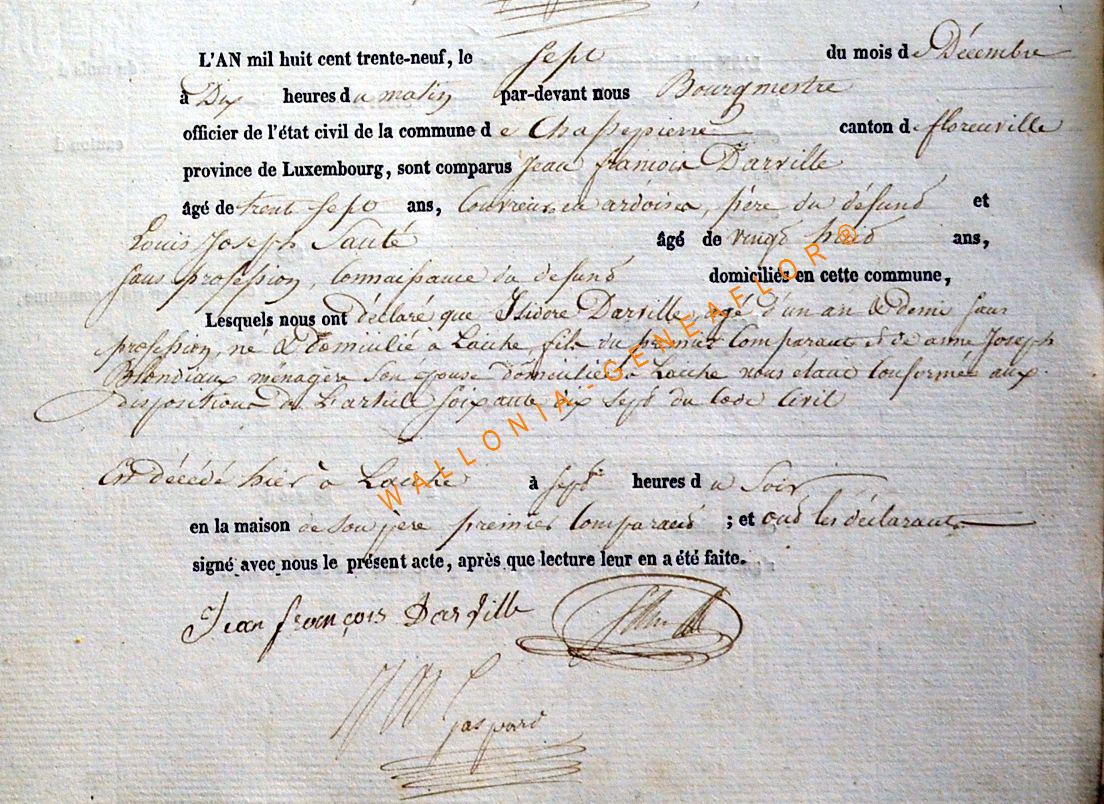 L'AN mil huit cent trente-neuf, le sept du mois de Décembre
à Dix heures du matin par-devant nous Bourgmestre
officier de l'état civil de la commune de Chassepierre canton de florenville
province de Luxembourg, sont comparus Jean françois Darville
âgé de trente sept ans, Couvreur en ardoises, père du défunt et
Louis Joseph Sauté âgé de vingt huit ans,
sans profession, Connaissance du defunt domiciliés en cette commune,
Lesquels nous ont déclaré que Isidore Darville, agé d'un an & demi sans
profession, né & domicilié à Laiche fils du premier Comparant et de anne Joseph
Blondiaux ménagère son épouse domiciliée à Laiche nous étant Conformée aux
dispositions de L'article soixante dix sept du Code Civil
Est décédé hier à Laiche à sept heures du Soir
en la maison de son père premier Comparant ; et ont les déclarants
signé avec nous le présent acte, après que lecture leur en a été faite.
Jean françois Darville
Gaspard
WALLONIA-GENEAFLOR®